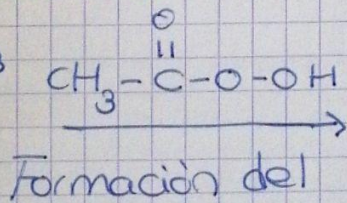 O
||
CH₃-C-O-OH
Formación del